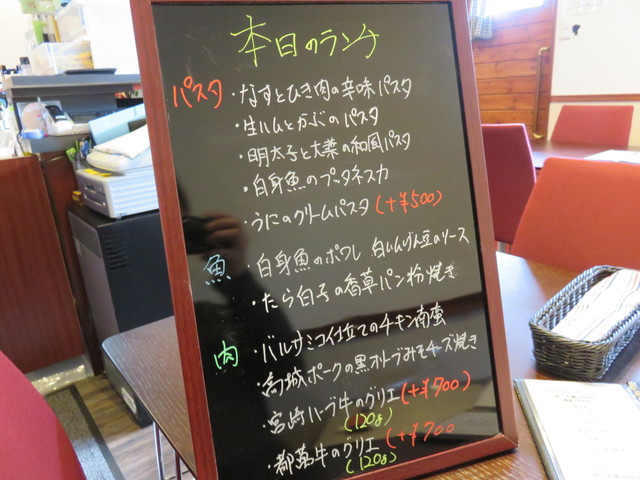 本日のランチ
パスタ ・なすとひき肉の辛味パスタ
・生ハムとかぶのパスタ
・明太子と大葉の和風パスタ
・白身魚のプッタネスカ
・うにのクリームパスタ (+¥500)
魚 ・白身魚のポワレ 白いんげん豆のソース
・たら白子の香草パン粉焼き
肉 ・バルサミコ仕立てのチキン南蛮
・高城ポークの黒オリーブみそチーズ焼き
・宮崎ハーブ牛のグリエ (+¥700)
(120g)
・都萬牛のグリエ (+¥700
(120g)